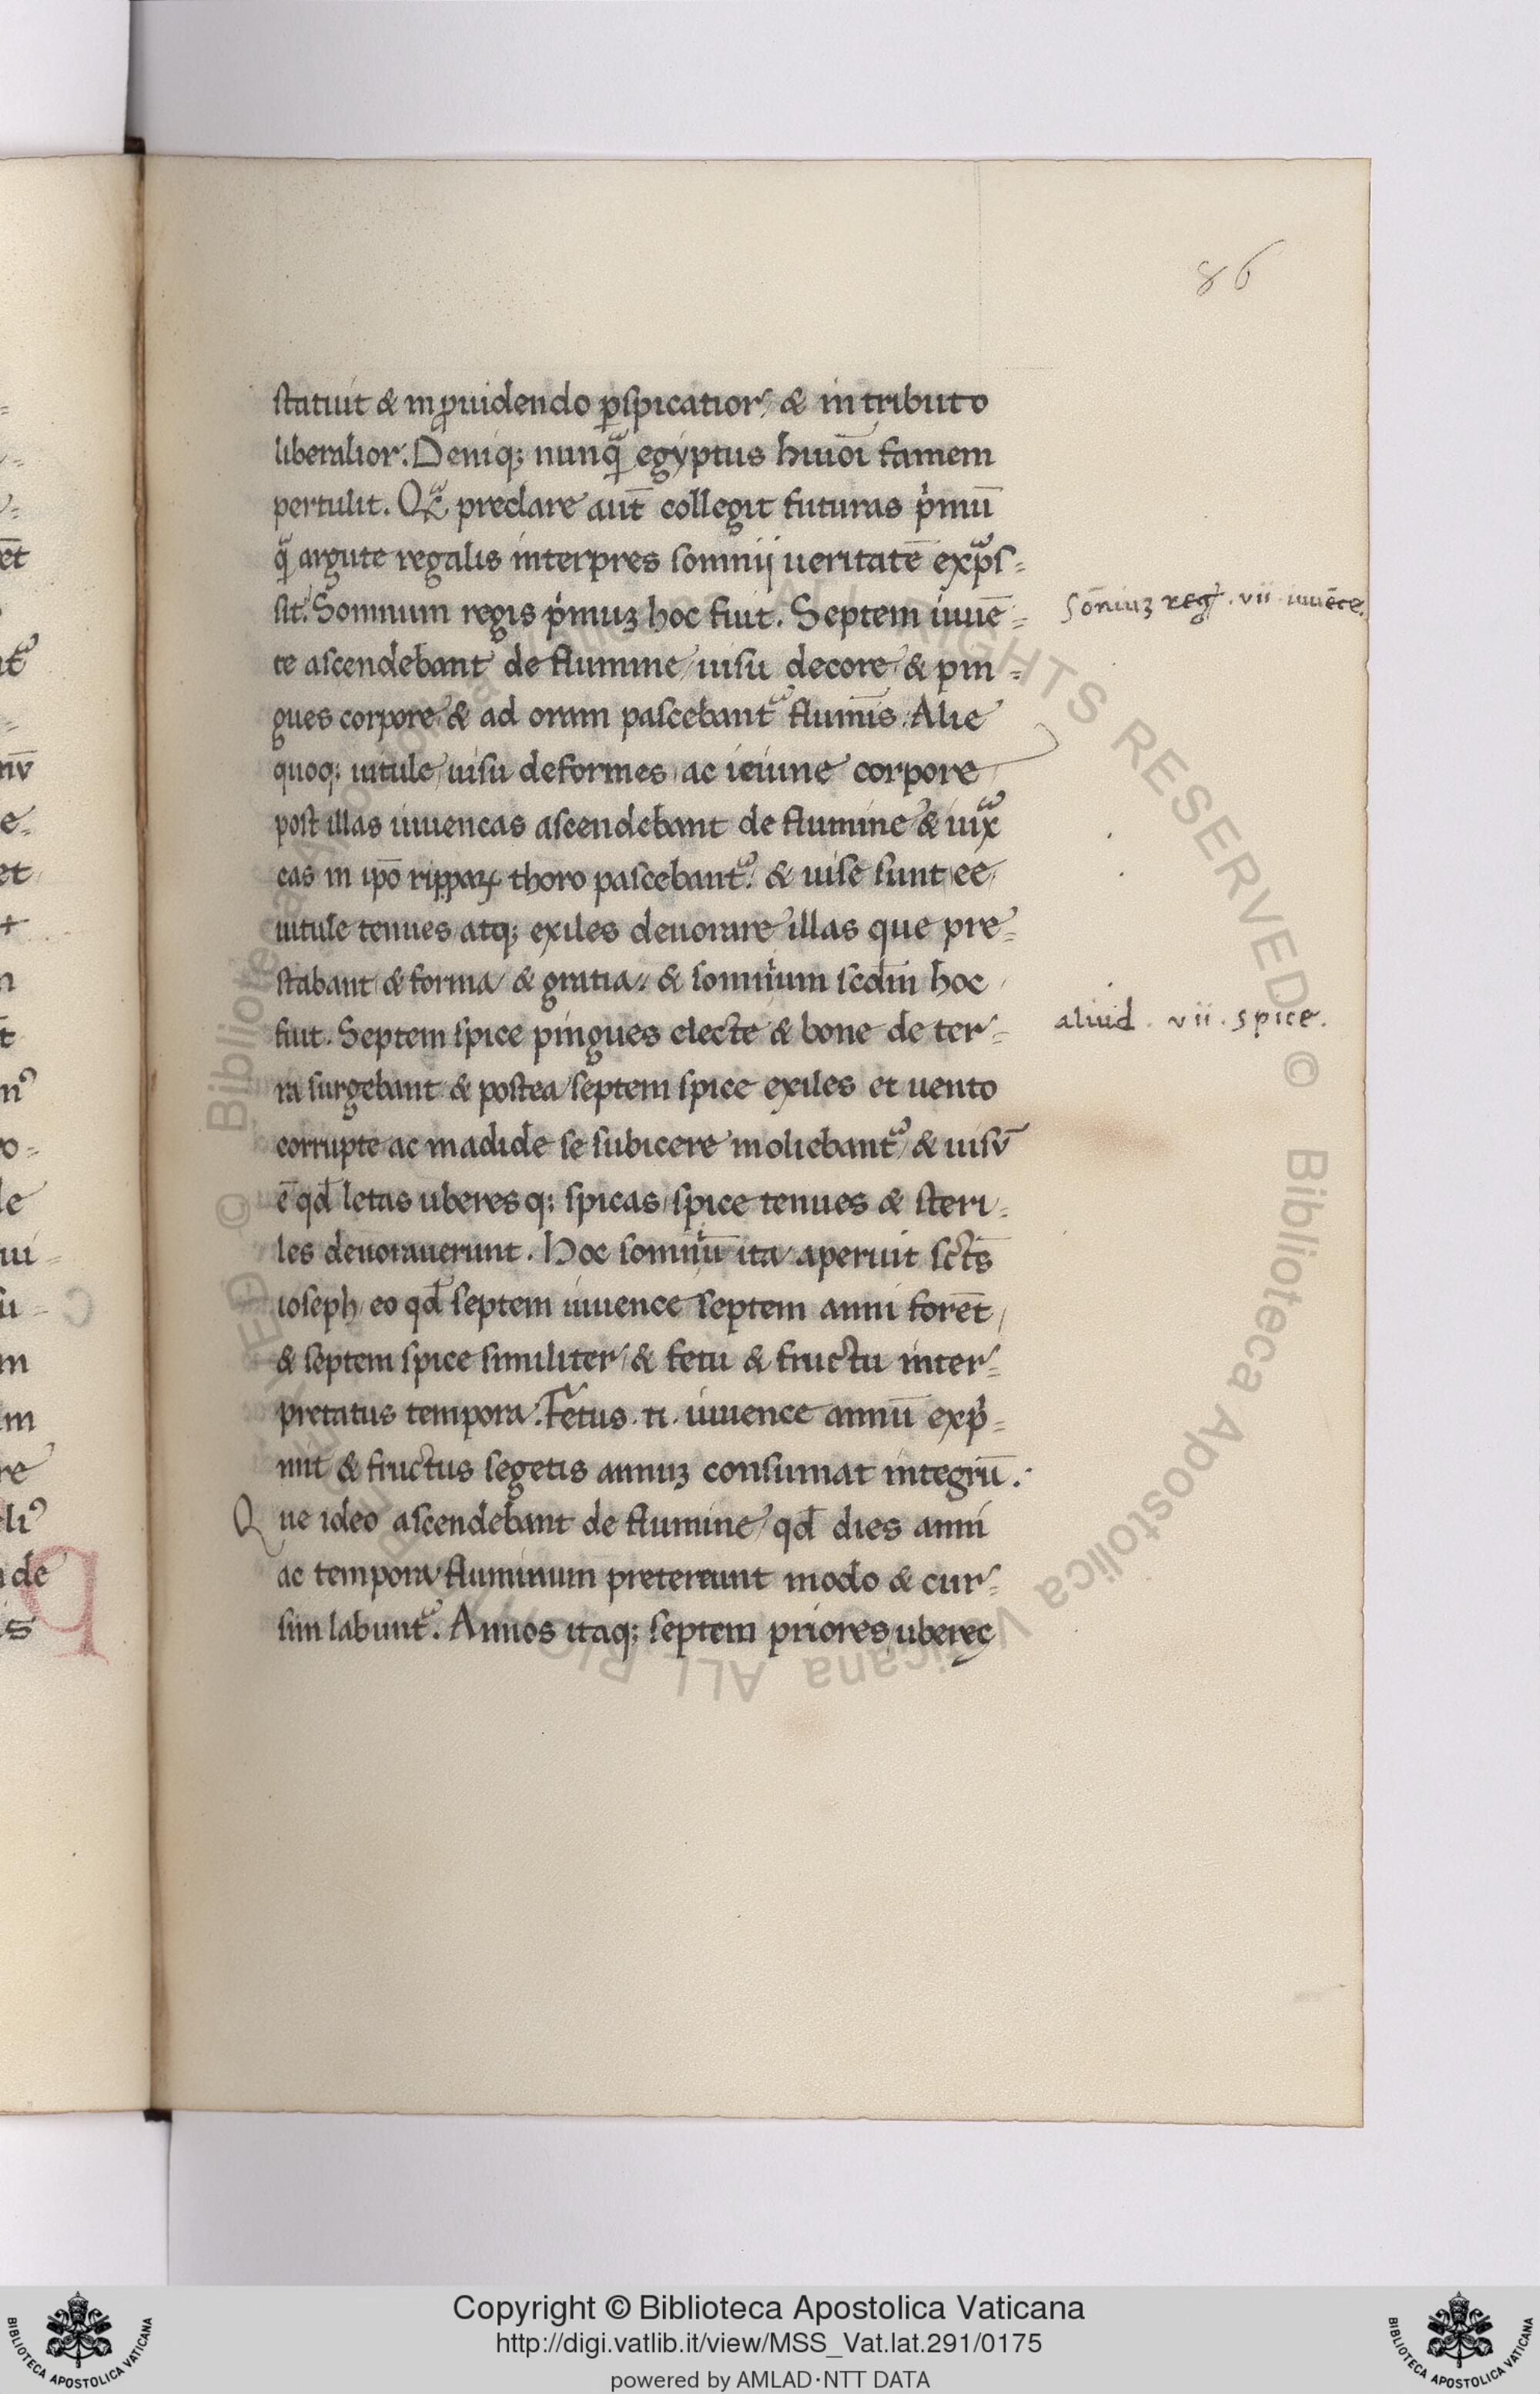 86
statuit & in ꝓuidendo ꝑspicatior / & in tributo
liberalior. Deniq; nunqᷓ egyptus huiōi famem
pertulit. Qᷓ preclare aut̄ collegit futuras pͥmū
qᷓ argute regalis interpres somnij ueritatē exp̃s-
sit. Somnum regis pͥmuꝫ hoc fuit. Septem iuuē-
sōniuꝫ reg̃ . vii iuuēce.
te ascendebant de flumine / uisu decore & pin-
gues corpore & ad oram pascebant᷑ flumīs. Alie
quoq; uitule, uisu deformes, ac ieiune corpore
post illas iuuencas ascendebant de flumine & iuxᷓ
eas in ip̄o rippaꝝ thoro pascebant᷑. & uise sunt ee
uitule tenues atq; exiles deuorare illas que pre-
stabant & forma / & gratia. & somnium scd̄m hoc
fuit. Septem spice pingues electe & bone de ter-
aliud . vii . spice.
ra surgebant & postea septem spice exiles et uento
corrupte ac madide se subicere moliebant᷑ / & uisū
ē qd̄ letas uberesq; spicas / spice tenues & steri-
les deuorauerunt. Hoc somniū ita aperuit sct̄s
ioseph / eo qd̄ septem iuuence septem anni forēt,
& septem spice similiter / & fetu & fructu inter-
pretatus tempora. Fetus . n . iuuence annū expͥ-
mit & fructus segetis annuꝫ consumat integrū.
Que ideo ascendebant de flumine / qd̄ dies anni
ac tempora fluminum pretereunt modo & cur-
sim labunt᷑. Annos itaq; septem priores uberes
Copyright © Biblioteca Apostolica Vaticana
http://digi.vatlib.it/view/MSS_Vat.lat.291/0175
powered by AMLAD·NTT DATA